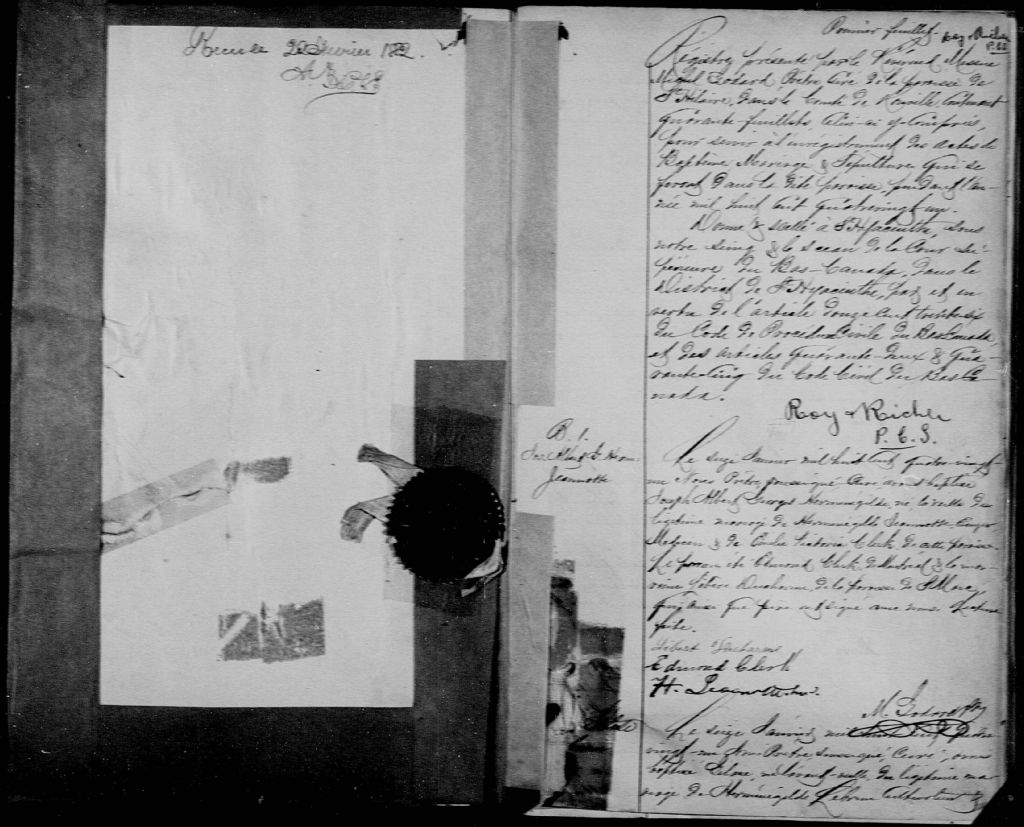 Reçu le 20 février 1882.
Premier feuillet. Roy & Richer
P.C.S.
Régistre présenté par le Révérend Messire
Miguel Godard, Prêtre, Curé de la paroisse de
St Hilaire, dans le Comté de Rouville, contenant
quarante-feuillets, celui-ci y-compris,
pour servir à l'enrégistrement des actes de
Baptême Mariage & Sépulture qui se
feront dans la dite paroisse, pendant l'an-
née mil huit cent quatrevingt un.
Donné & scellé à St Hyacinthe, sous
notre seing & le sceau de la Cour Su-
périeure du Bas-Canada, dans le
District de St Hyacinthe, par et en
vertu de l'article douze cent trente six
du Code de Procédure Civile du Bas Canada,
et des articles quarante-deux & qua-
rante-cinq du Code Civil du Bas Ca-
nada.
Roy & Richer
P.C.S.
B. 1.
Jos. Albert G. Herm.
Jeannotte
Le seize Janvier mil huit cent quatre-vingt-
un Nous Prêtre, soussigné Curé avons baptisé
Joseph Albert Georges Herménégilde, né la veille du
légitime mariage de Herménégilde Jeannotte, Ecuyer
Médecin & de Emilie Victoria Clerk de cette paroisse.
Le parrain été Edmond Clerk de Montréal & la mar-
raine Ducharme de la paroisse de St Marc
que père ont signé avec nous lecture
faite.
Ducharme
Edmond Clerk
H. Jeannotte
M. Godard Ptre
Le seize Janvier mil huit cent quatre
vingt-un Prêtre, soussigné, Curé, avons
baptisé du légitime ma-
riage de Herménégilde cultivateur &